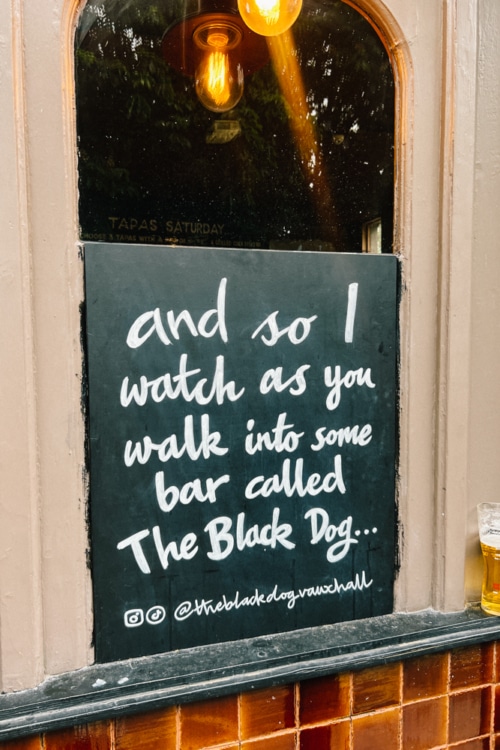 TAPAS SATURDAY
and so I
watch as you
walk into some
bar called
The Black Dog...
@theblackdogvauxhall